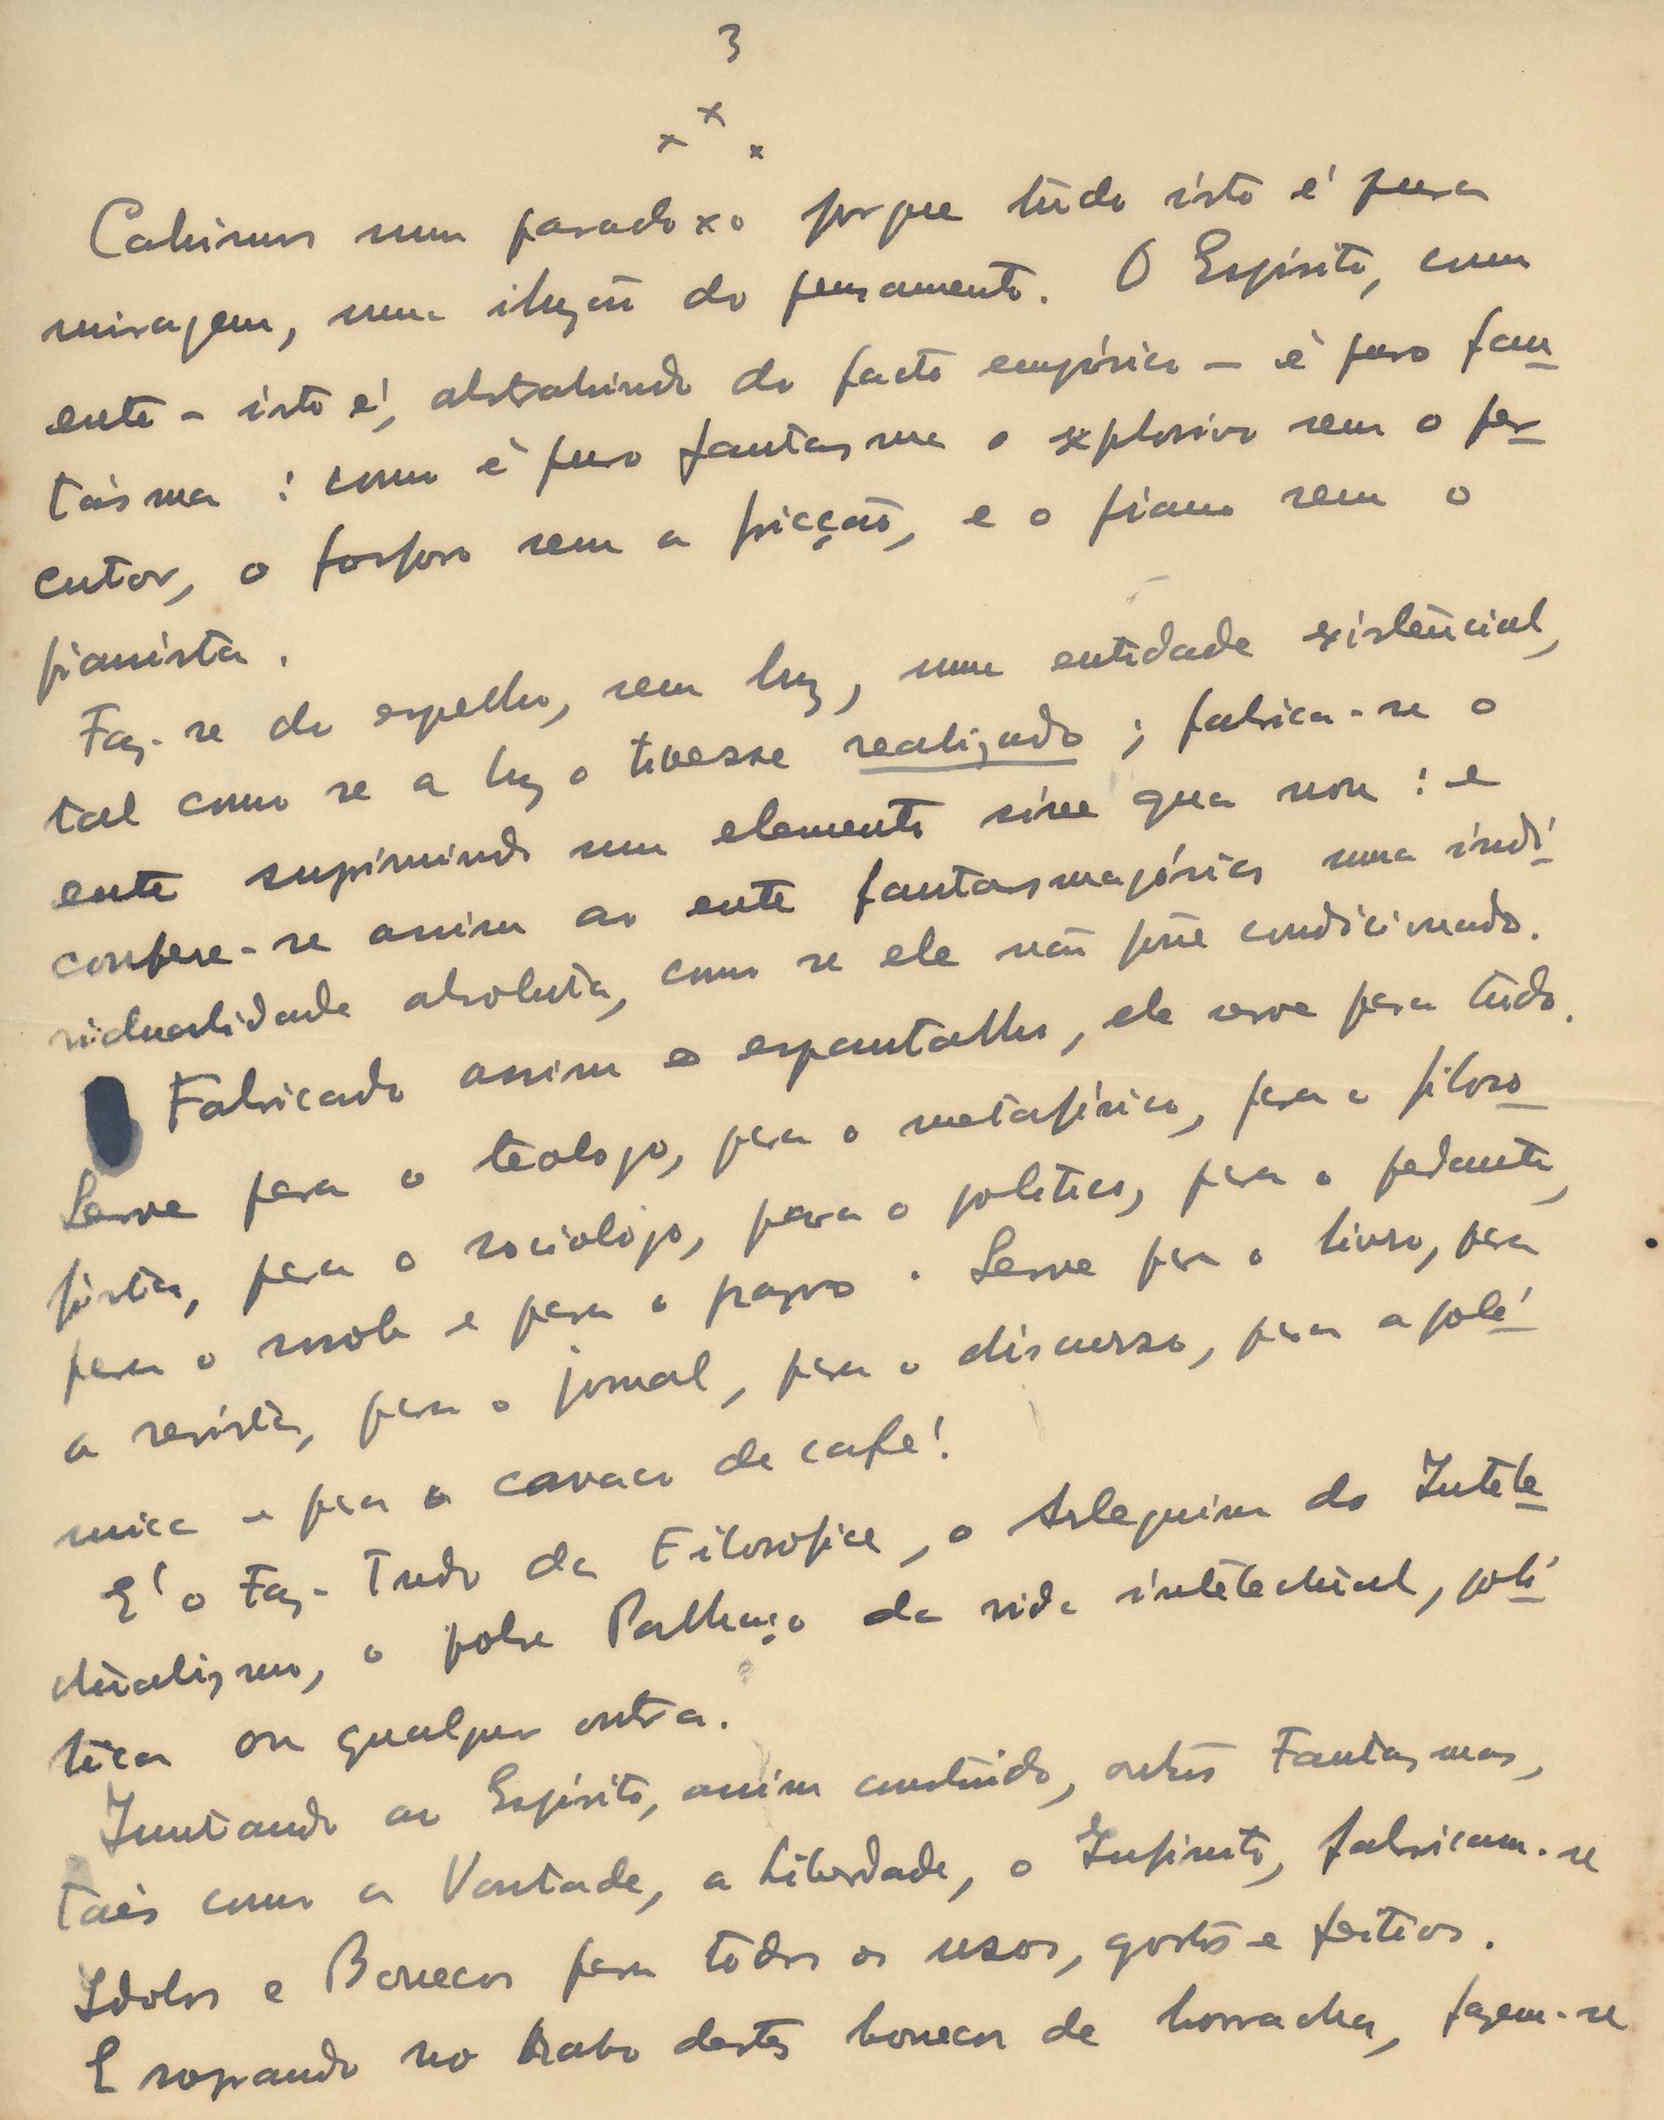 3
x x x
Cahimos num paradoxo porque tudo isto é pura
miragem, uma ilusão do pensamento. O Espírito, como
ente - isto é, abstrahindo do facto empírico - é puro fan-
tasma : como é puro fantasma o explosivo sem o per-
cutor, o fosforo sem a fricção, e o piano sem o
pianista.
Faz-se do espelho, sem luz, uma entidade existêncial,
tal como se a luz o tivesse realizado ; fabrica-se o
ente suprimindo um elemento sine qua non : e
confere-se assim ao ente fantasmagórico uma indi-
vidualidade absoluta, como se ele não fôsse condicionado.
Fabricado assim o espantalho, ele serve para tudo.
Serve para o teologo, para o metafisico, para o filoso-
fista, para o sociologo, para o politico, para o pedante,
para o snob e para o parvo. Serve para o livro, para
a revista, para o jornal, para o discurso, para a polé-
mica e para o cavaco de café!
E' o Faz-Tudo da Filosofice, o Arlequim do Intele-
ctualismo, o pobre Palhaço da vida intelectual, poli-
tica ou qualquer outra.
Juntando ao Espírito, assim construido, outros Fantasmas,
tais como a Vontade, a Liberdade, o Infinito, fabricam-se
Idolos e Bonecos para todos os usos, gostos e feitios.
E soprando no rabo destes bonecos de borracha, fazem-se